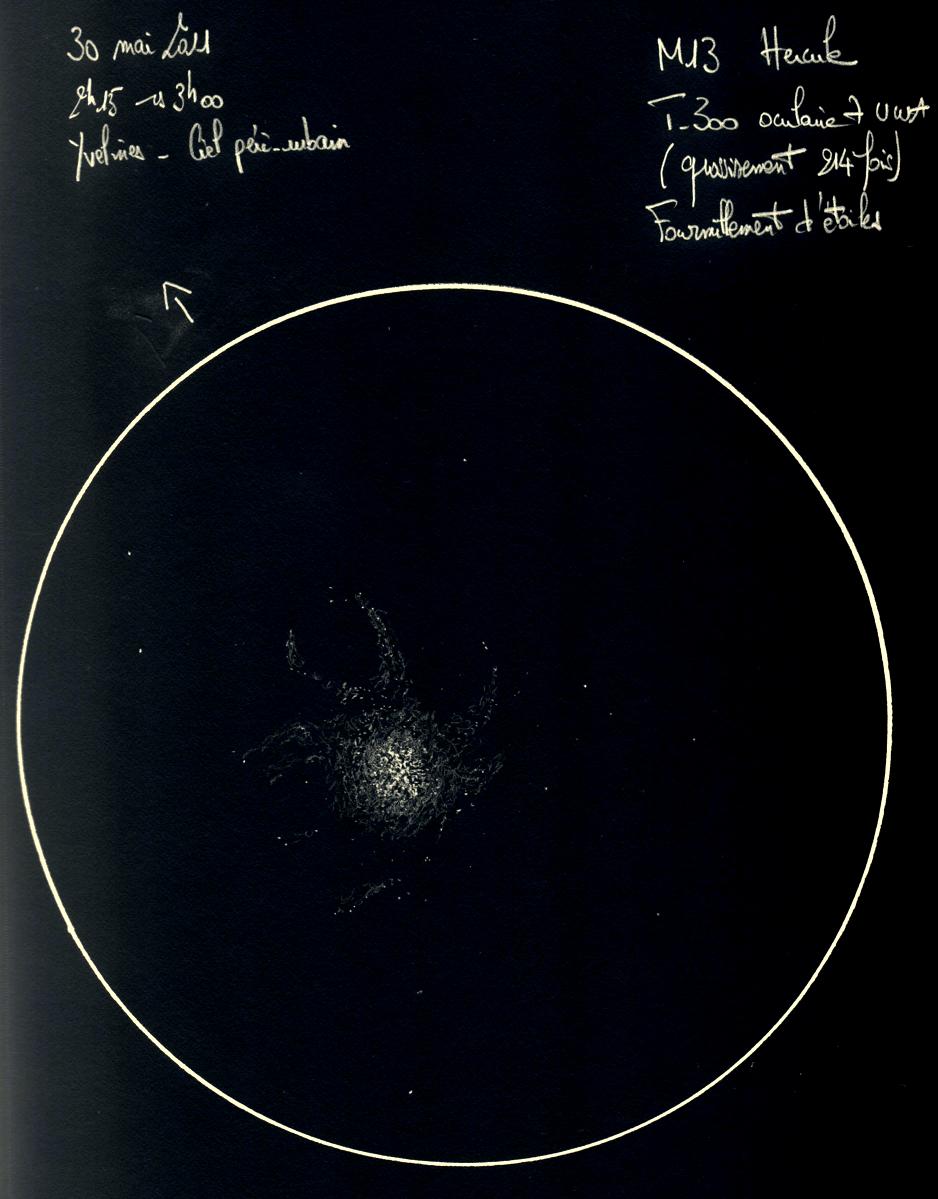 30 mai 2011
2h15 → 3h00
Yvelines - Ciel péri-urbain
M13 Hercule
T-300 oculaire 7 UWA
(grossissement 214 fois)
Fourmillement d'étoiles